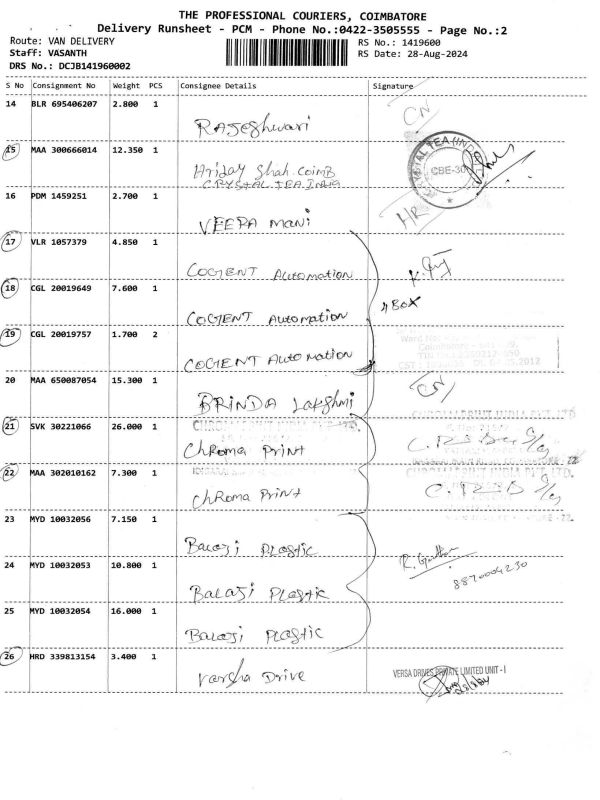 THE PROFESSIONAL COURIERS, COIMBATORE
Delivery Runsheet - PCM - Phone No.:0422-3505555 - Page No.:2
Route: VAN DELIVERY
Staff: VASANTH
DRS No.: DCJB141960002
RS No.: 1419600
RS Date: 28-Aug-2024
S No Consignment No Weight PCS Consignee Details Signature
14 BLR 695406207 2.800 1 Rajeshwari CN
15 MAA 300666014 12.350 1 Hriday Shah. Coimb
CRYSTAL TEA INDIA
CRYSTAL TEA (INDIA)
CBE-30
16 PDM 1459251 2.700 1 VEEPA Mani HR
17 VLR 1057379 4.850 1 COGENT Automation
18 CGL 20019649 7.600 1 COGENT Automation 4 BOX
19 CGL 20019757 1.700 2 COGENT Automation
20 MAA 650087054 15.300 1 BRINDA Lakshmi CN
21 SVK 30221066 26.000 1 Chroma Print
CHROMAPRINT INDIA PVT. LTD.
22 MAA 302010162 7.300 1 Chroma Print
CHROMAPRINT INDIA PVT. LTD.
23 MYD 10032056 7.150 1 Balaji Plastic
24 MYD 10032053 10.800 1 Balaji Plastic
8870004230
25 MYD 10032054 16.000 1 Balaji Plastic
26 HRD 339813154 3.400 1 Varsha Drive
VERSA DRIVES PRIVATE LIMITED UNIT - I